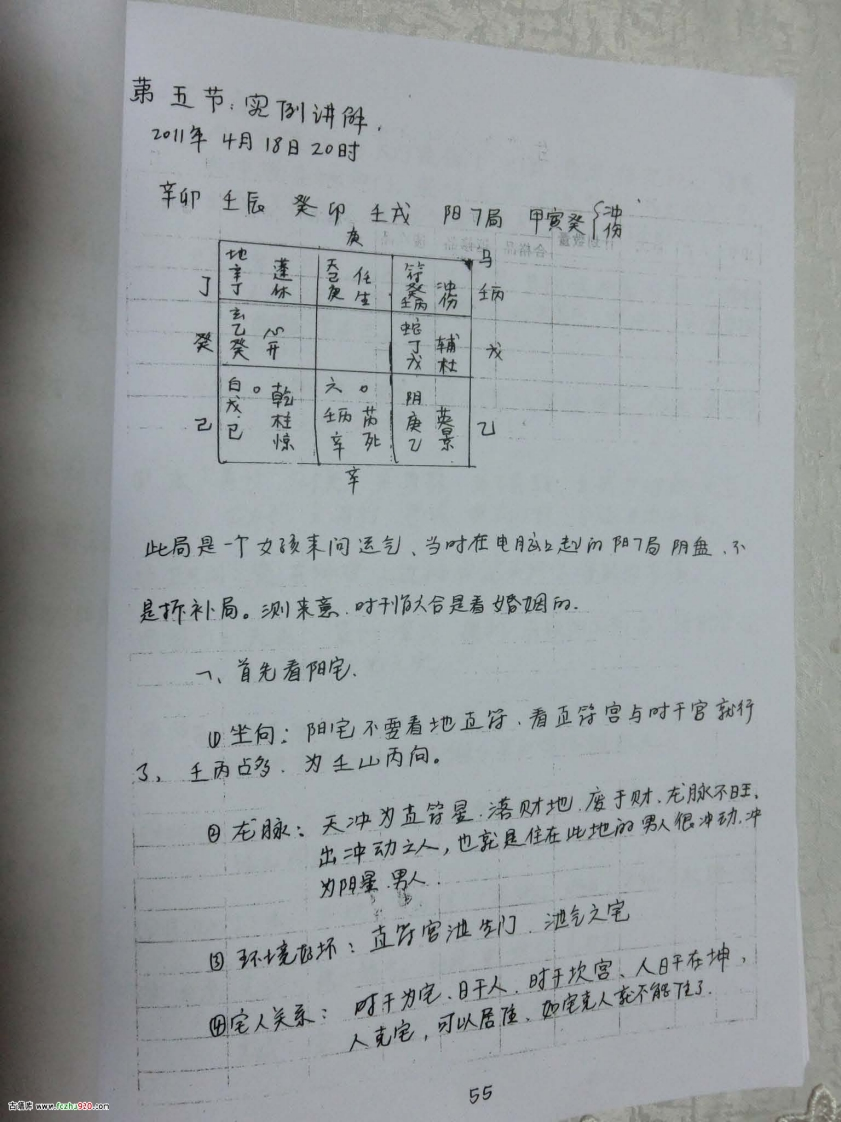 第五节：实例讲解，
2011年4月18日20时
辛卯 壬辰 癸卯 壬戌 阳7局 甲寅癸{冲伤
庚
马
地 辛 丁 蓬 休
天 己 庚 任 生
符 癸 壬丙 冲 伤
丁
壬丙
玄 乙 癸 心 开
蛇 丁 戊 辅 杜
癸
戊
白 戊 己 乾 柱 惊
六 壬丙 辛 芮 死
阴 庚 乙 英 景
己
乙
辛
此局是一个女孩来问运气、当时在电脑上起的阳7局阴盘、不
是拆补局。测来意、时干临六合是看婚姻的.
一、首先看阳宅.
①坐向：阳宅不要看地直符、看直符宫与时干宫就行
了，壬丙占多、为壬山丙向。
②龙脉：天冲为直符星、落财地、废于财、龙脉不旺、
出冲动之人，也就是住在此地的男人很冲动、冲
为阳星、男人.
③环境好坏：直符宫泄生门、泄气之宅
④宅人关系：时干为宅、日干人、时干坎宫、人日干在坤，
人克宅，可以居住、如宅克人就不能住了.
55
古籍库 www.fczhu920.com